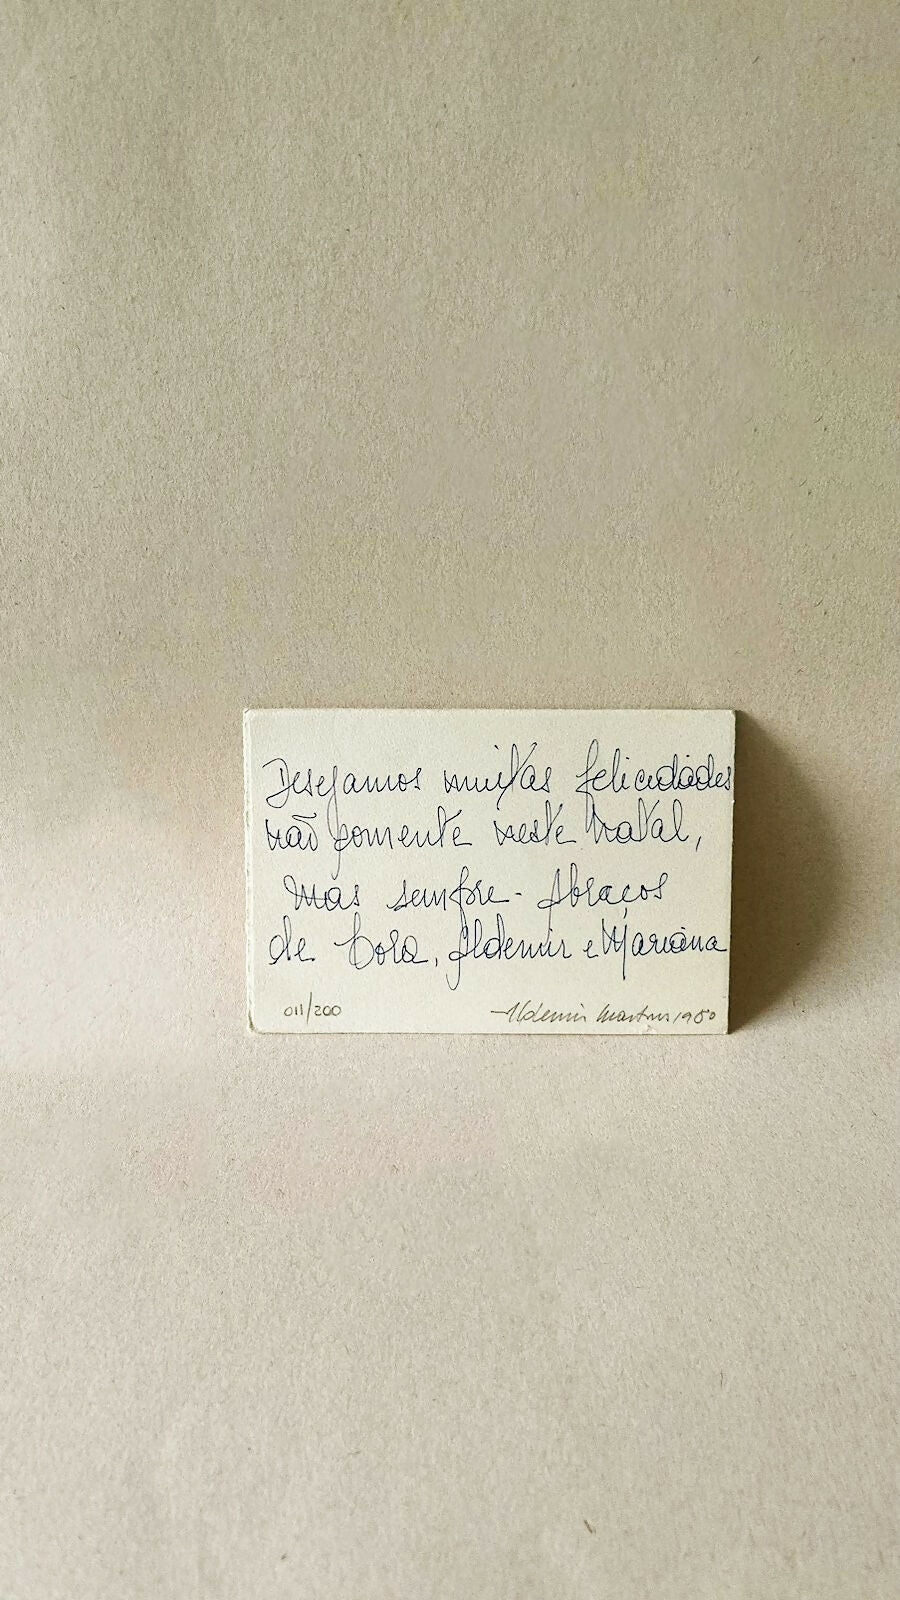 Desejamos muitas felicidades
não somente neste Natal,
mas sempre - Abraços
de Cora, Aldemir e Mariana
011/200
Aldemir Martins 1980